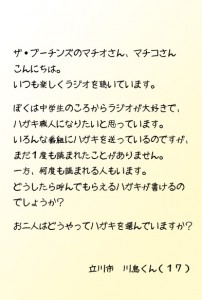 ザ・プーチンズのマチオさん、マチコさん
こんにちは。
いつも楽しくラジオを聴いています。
ぼくは中学生のころからラジオが大好きで、
ハガキ職人になりたいと思っています。
いろんな番組にハガキを送っているのですが、
まだ1度も読まれたことがありません。
一方、何度も読まれる人もいます。
どうしたら呼んでもらえるハガキが書けるの
でしょうか?
お二人はどうやってハガキを選んでいますか?
立川市 川島くん(17)